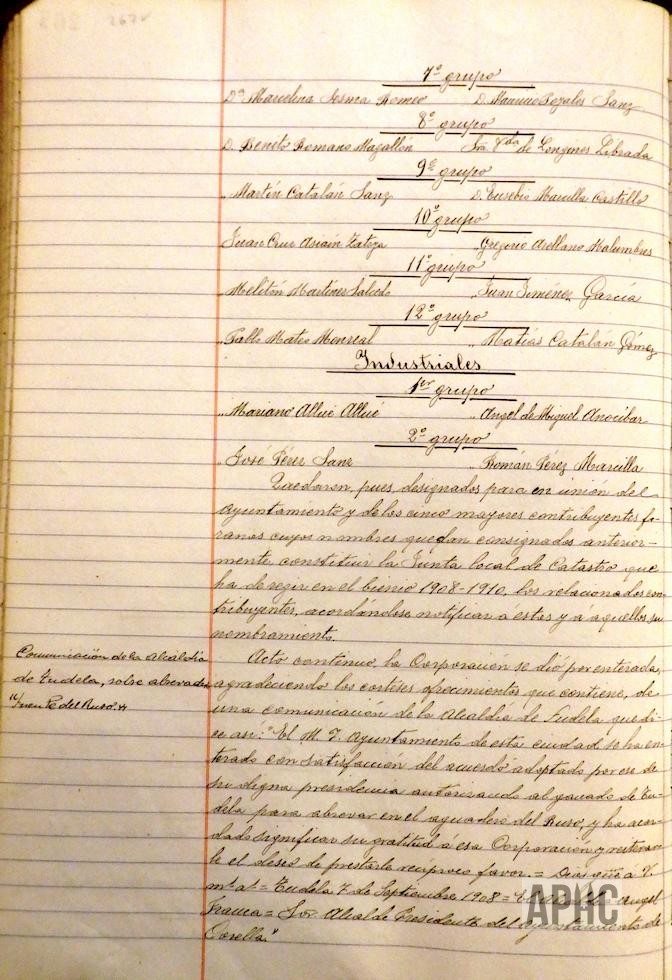 262v
7º grupo
Dª Marcelina Sesma Romeo D. Mauricio Pozales Sanz
8º grupo
D. Benito Romano Magallón Sra. Vda de Longinos Librada
9º grupo
„ Martín Catalán Sanz D. Eusebio Marcilla Castillo
10º grupo
Juan Cruz Asiain „ Gregorio Arellano Malumbres
11º grupo
„ Melitón Martínez Salcedo „ Juan Jiménez García
12º grupo
„ Pablo Mateo Monreal „ Matías Catalán Gómez
Industriales
1er grupo
„ Mariano Allué Allué „ Angel de Miguel Anocibar
2º grupo
„ José Pérez Sanz „ Román Pérez Marcilla
Quedaron, pues, designados para en unión del
Ayuntamiento y de los cinco mayores contribuyentes fo-
ranos cuyos nombres quedan consignados anterior-
mente, constituir la Junta local de Catastro que
ha de regir en el bienio 1908-1910, los relacionados con-
tribuyentes, acordándose notificar á estos y á aquellos su
nombramiento.
Comunicación de la Alcaldía
de Tudela, sobre abrevadero
"Fuente del Ruso."
Acto continuo, la Corporación se dió por enterada,
agradeciendo los corteses ofrecimientos que contiene, de
una comunicación de la Alcaldía de Tudela que di-
ce así: "El M. I. Ayuntamiento de esta ciudad se ha en-
terado con satisfacción del acuerdo adoptado por ese de
su digna presidencia autorizando al ganado de Tu-
dela para abrevar en el aguadero del Ruso, y ha acor-
dado significar su gratitud á esa Corporación y reiterar-
le el deseo de prestarle recíproco favor. = Dios gue á V.
ms. as. = Tudela 7 de Septiembre 1908 = El Alcalde = Angel
Frauca = Sor. Alcalde Presidente del Ayuntamiento de
Corella."
APHC